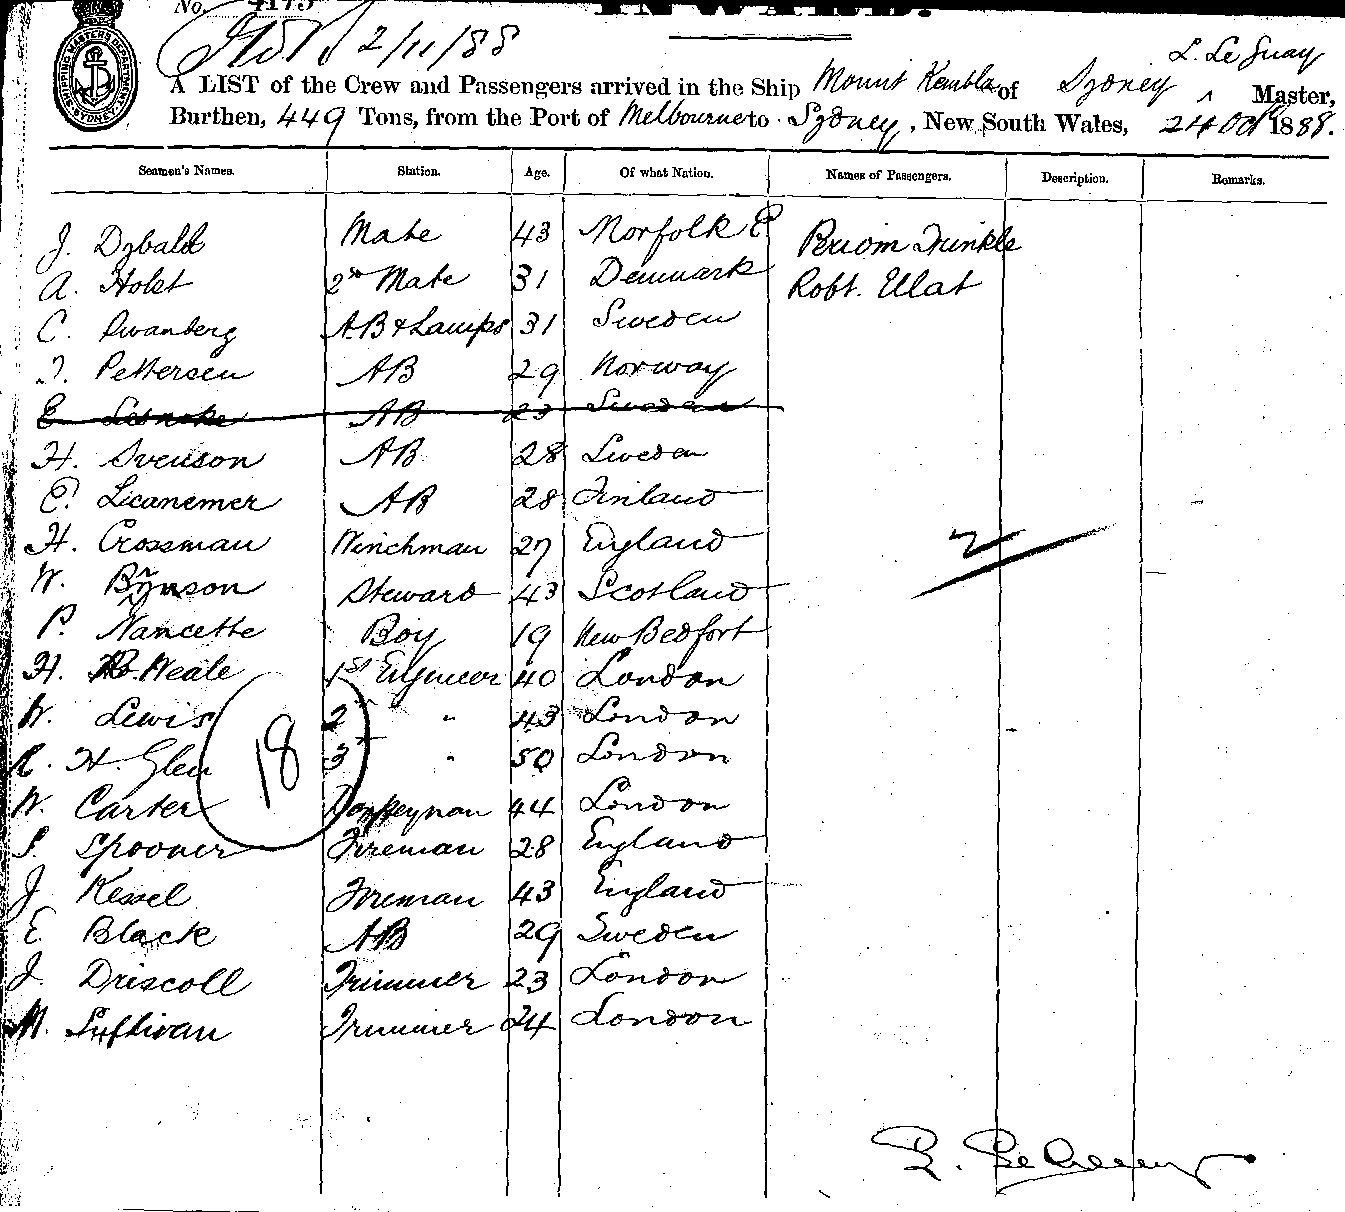 No. 4175
INWARD.
2/11/88
L. Le Guay
A LIST of the Crew and Passengers arrived in the Ship Mount Kembla of Sydney ^ Master,
Burthen, 449 Tons, from the Port of Melbourne to Sydney, New South Wales, 24 Oct 1888.
Seamen's Names. Station. Age. Of what Nation. Names of Passengers. Description. Remarks.
J. Dybald Mate 43 Norfolk E
A. Holst 2nd Mate 31 Denmark Robt. Ellat
C. Swanberg AB & Lamps 31 Sweden
Pettersen AB 29 Norway
E AB 23 Sweden
H. Svenson AB 28 Sweden
AB 28 Finland
H. Crossman Winchman 27 England
2
W. Steward 43 Scotland
P. Nancette Boy 19 New Bedfort
H. Weale 1st Engineer 40 London
W. Lewis 2nd " 43 London
18
R. H. Glen 3rd " 50 London
W. Carter Donkeyman 44 London
S. Spooner Fireman 28 England
J Kessel Fireman 43 England
E. Black AB 29 Sweden
J. Driscoll Trimmer 23 London
M. Sullivan Trimmer 24 London
SHIPPING MASTER'S DEPARTMENT SYDNEY